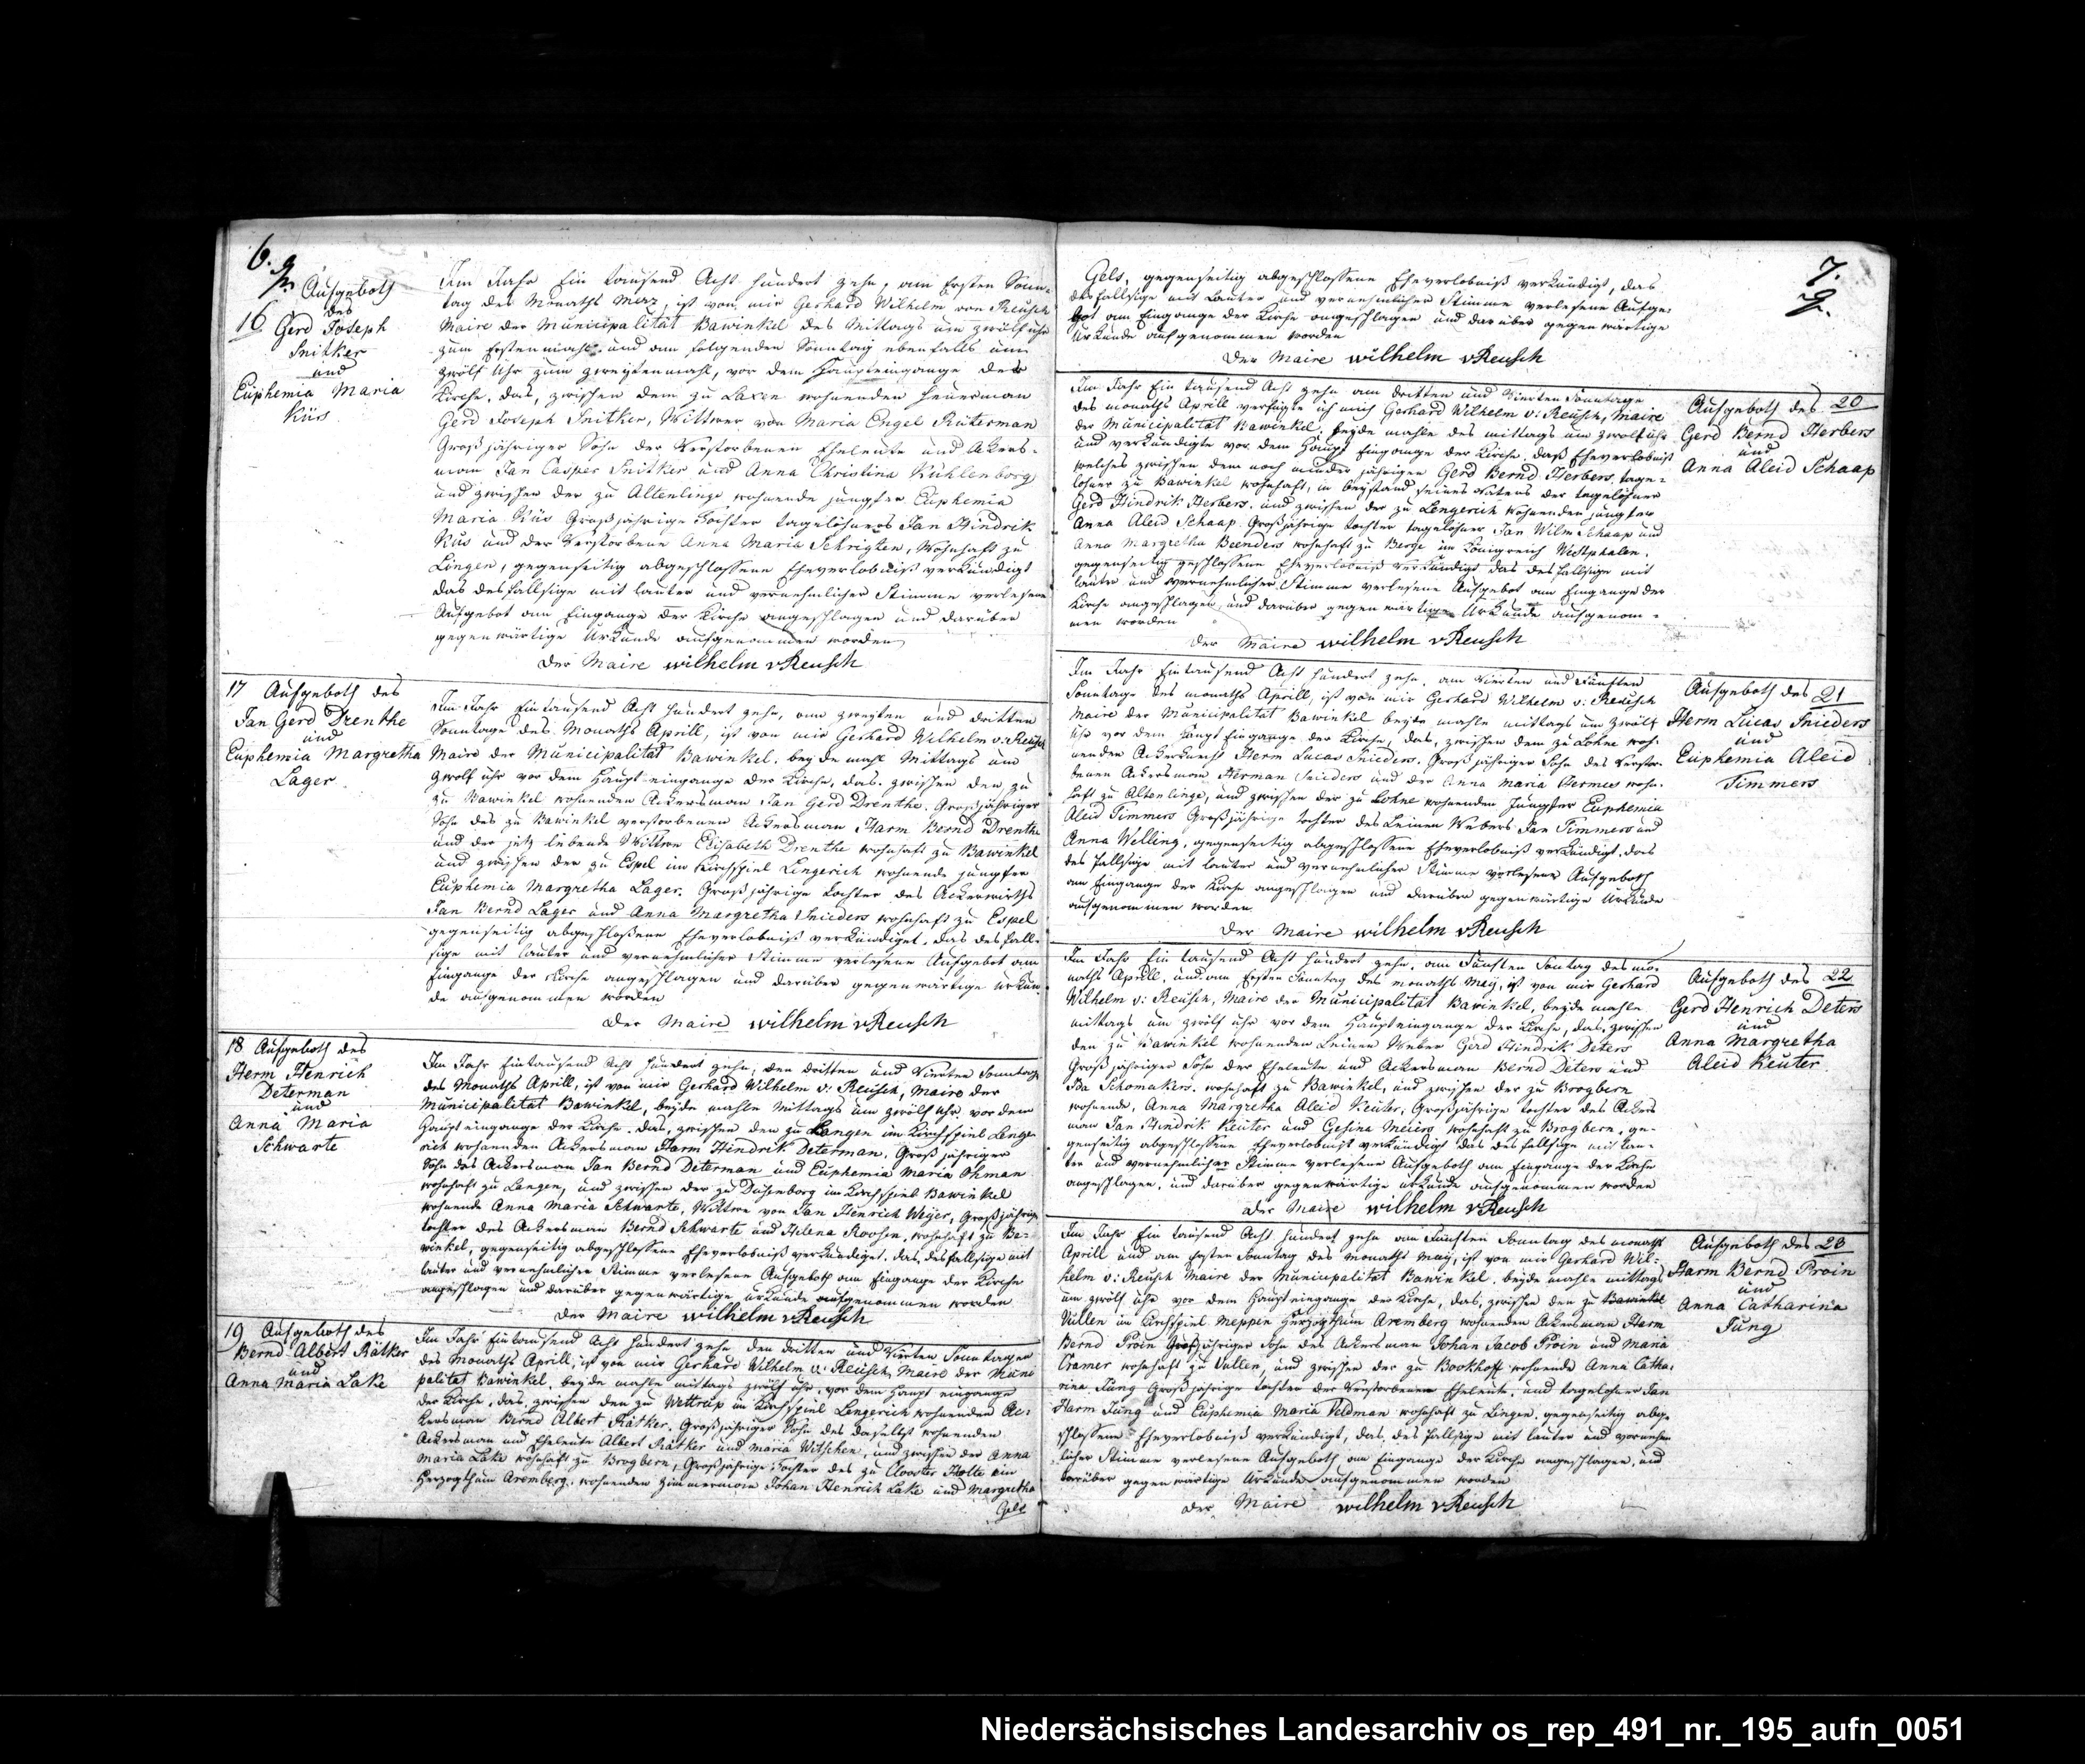 6.
16
Aufgeboth
des
Gerd Joseph
Snitker
und
Euphemia Maria
Küs
Im Jahr Ein tausend Acht hundert zehn, am Ersten Sonn-
tag des Monaths Merz, ist von mir Gerhard Wilhelm von Reusch
Maire der Municipalität Bawinkel des Mittags um zwölf uhr
zum Erstenmahl und am folgenden Sonntag ebenfalls um
zwölf Uhr zum zweytenmahl, vor dem Haupteingange der
Kirche, das, zwischen dem zu Laxen wohnenden Heuerman
Gerd Joseph Snitker, Wittwer von Maria Engel Rüterman
Großjähriger Sohn der Verstorbenen Eheleute und Akers-
man Jan Casper Snitker und Anna Christina Kühlenborg
und zwischen der zu Altenlinge wohnende jungfer Euphemia
Maria Küs Großjährige Tochter tagelöhners Jan Hindrik
Küs und der Verstorbene Anna Maria Schrigten, Wohnhaft zu
Lingen, gegenseitig abgeschlossene Eheverlobniß verkündigt
das desfallsige mit lauter und vernehmlicher Stimme verlesene
Aufgebot am Eingange der Kirche angeschlagen und darüber
gegenwärtige Urkunde aufgenommen worden
Der Maire wilhelm vReusch
17 Aufgeboth des
Jan Gerd Drenthe
und
Euphemia Margretha
Lager
Im Jahr Eintausend Acht hundert zehn, am zweyten und dritten
Sonntage des Monaths Aprill, ist von mir Gerhard Wilhelm v. Reusch
Maire der Municipalitat Bawinkel. beyde mahl Mittags um
zwolf uhr vor dem Haupt eingange der Kirche, das. zwischen den zu
zu Bawinkel wohnenden Ackersman Jan Gerd Drenthe. Großjähriger
Sohn des zu Bawinkel verstorbenen Ackersman Harm Bernd Drenthe
und der jetz lebende Wittwe Elisabeth Drenthe wohnhaft zu Bawinkel
und zwischen der zu Espel im Kirchspiel Lingerich wohnende jungfer
Euphemia Margretha Lager. Großjährige tochter des Ackerwirths
Jan Bernd Lager und Anna Margretha Snieders wohnhaft zu Espel
gegenseitig abgeschloßene Eheverlobniß verkündiget. das desfall-
sige mit lauter und vernehmlicher Stimme verlesene Aufgebot am
Eingange der Kirche angeschlagen und darüber gegenwärtige Urkun-
de aufgenommen worden
Der Maire wilhelm vReusch
18 Aufgeboth des
Herm Henrich
Determan
und
Anna Maria
Schwarte
Im Jahr Eintausend Acht hundert zehn, den dritten und Vierten Sonntage
des Monaths Aprill, ist von mir Gerhard Wilhelm v: Reusch, Maire der
Municipalitat Bawinkel, beyde mahle Mittags um zwölf uhr, vor dem
Haupteingange der Kirche. das, zwischen den zu Langen im Kirchspiel Lenge
rich wohnenden Ackersman Harm Hindrik Determan. Großjähriger
Sohn des Ackersman Jan Bernd Determan und Euphemia Maria Ohman
wohnhaft zu Langen, und zwischen der zu Duisenborg im Kirchspiel Bawinkel
wohnende Anna Maria Schwarte, Wittwe von Jan Henrich Weijer, Großjährige
tochter des Ackersman Bernd Schwarte und Helena Roohsen, wohnhaft zu Ba-
winkel, gegenseitig abgeschlossene Eheverlobniß verkündiget. das desfallsige mit
lauter und vernehmlicher Stimme verlesene Aufgeboth am Eingange der Kirche
angeschlagen und darüber gegenwärtige urkunde aufgenommen worden
Der Maire wilhelm vReusch
19 Aufgeboth des
Bernd Albert Rätker
und
Anna Maria Lake
Im Jahr Eintausend Acht hundert zehn den dritten und Vierten Sonntagen
des Monaths Aprill, ist von mir Gerhard Wilhelm v. Reusch, Maire der Muni
palitat Bawinkel. beyde mahle mittags zwölf uhr, vor dem Haupt eingange
der Kirche, das, zwischen den zu Wettrup im Kirchspiel Lengerich wohnenden Ac-
kersman Bernd Albert Rätker. Großjähriger Sohn des daselbst wohnenden
Ackersman und Eheleute Albert Rätker und Maria Witschen, und zwischen der Anna
Maria Lake wohnhaft zu Brogbern, Großjährige Tochter des zu Clooster Holte im
Herzogthum Aremberg. wohnenden zimmerman Johan Henrich Lake und Margretha
Gels
7.
Gels, gegenseitig abgeschlossene Eheverlobniß verkündigt, das
desfallsige mit lauter und vernehmlicher Stimme verlesene Aufge-
bot am Eingange der Kirche angeschlagen und darüber gegenwärtige
Urkunde aufgenommen worden
Der Maire wilhelm vReusch
Aufgeboth des 20
Gerd Bernd Herbers
und
Anna Aleid Schaap
Im Jahr Ein tausend Acht zehn am dritten und Vierten Sonntage
des monaths Aprill verfügte ich mich Gerhard Wilhelm v: Reusch, Maire
der Municipalitat Bawinkel. beyde mahle des mittags um zwölf uhr
und verkündigte vor dem Haupt Eingange der Kirche. daß Eheverlobniß
welches zwischen dem noch minder jährigen Gerd Bernd Herbers, tage-
löhner zu Bawinkel wohnhaft, in beystand seines Vatens der tagelöhner
Gerd Hindrik Herbers. und zwischen der zu Lengerich wohnenden jungfer
Anna Aleid Schaap Großjährige tochter tagelöhner Jan Wilm Schaap und
Anna Margretha Beenders wohnhaft zu Berge im Königreich Westphalen.
gegenseitig geschlossene Eheverlobniß verkündigt das desfallsige mit
lauter und vernehmlicher Stimme verlesene Aufgebot am Eingange der
Kirche angeschlagen und darüber gegenwärtige Urkunde aufgenom-
men worden
Der Maire wilhelm vReusch
Aufgeboth des 21
Herm Lucas Snieders
und
Euphemia Aleid
Timmers
Im Jahr Eintausend Acht hundert zehn, am Vierten und Fünften
Sonntage des monaths Aprill, ist von mir Gerhard Wilhelm v: Reusch
Maire der Municipalitat Bawinkel beyde mahle mittags um zwölf
uhr vor dem Haupt Eingange der Kirche, das, zwischen dem zu Lohne woh-
nenden Ackerknecht Herm Lucas Snieders. Großjähriger Sohn des Verstor-
benen Ackersman Herman Snieders und der Anna Maria Hermes wohn-
haft zu Altenlinge, und zwischen der zu Lohne wohnenden Jungfer Euphemia
Aleid Timmers Großjährige tochter des Leinen Webers Jan Timmers und
Anna Welling, gegenseitig abgeschlossene Eheverlobniß verkündigt, das
desfallsige mit lauter und vernehmlicher Stimme verlesene Aufgeboth
am Eingange der Kirche angeschlagen und darüber gegenwärtige Urkunde
aufgenommen worden
Der Maire wilhelm vReusch
Aufgeboth des 22
Gerd Henrich Deters
und
Anna Margretha
Aleid Keuter
Im Jahr Ein tausend Acht hundert zehn, am Fünften Sontag des mo-
naths Aprill, und am Ersten Sonntag des monaths Mey, ist von mir Gerhard
Wilhelm v: Reusch, Maire der Municipalitat Bawinkel, beyde mahle
mittags um zwölf uhr vor dem Haupteingange der Kirche, das, zwischen
den zu Bawinkel wohnenden Leinen Weber Gerd Hindrik Deters
Großjähriger Sohn der Eheleute und Ackersman Bernd Deters und
Ida Schomakers. wohnhaft zu Bawinkel, und zwischen der zu Brogbern
wohnende, Anna Margretha Aleid Keuter, Großjährige tochter des Ackers
man Jan Hindrik Keuter und Gesina Meiers wohnhaft zu Brogbern, ge-
genseitig abgeschlossene Eheverlobniß verkündigt das desfallsige mit lau-
ter und vernehmlicher Stimme verlesene Aufgeboth am Eingange der Kirche
angeschlagen. und darüber gegenwärtige urkunde aufgenommen worden
der Maire wilhelm vReusch
Aufgeboth des 23
Harm Bernd Proin
und
Anna Catharina
Jung
Im Jahr Ein tausend Acht hundert zehn am Fünften Sonntag des monath
Aprill und am Ersten Sonntag des Monaths May, ist von mir Gerhard Wil-
helm v: Reusch Maire der Municipalitat Bawinkel. beyde mahle mittags
um zwölf uhr vor dem Haupteingange der Kirche, das, zwischen den zu Bawinkel
Vullen im Kirchspiel Meppen Herzogthum Aremberg wohnenden Ackersman Harm
Bernd Proin Großjähriger Sohn des Ackersman Johan Jacob Proin und Maria
Cramer wohnhaft zu Vullen, und zwischen der zu Bookhoff wohnende Anna Catha-
rina Jung Großjährige tochter der Verstorbenen Eheleute, und tagelöhner Jan
Harm Jung und Euphemia Maria Veldman wohnhaft zu Lingen. gegenseitig abge-
schlossene Eheverlobniß verkündigt, das, desfallsige mit lauter und vernehm
licher Stimme verlesene Aufgeboth am Eingange der Kirche angeschlagen, und
darüber gegenwärtige Urkunde aufgenommen worden
der Maire wilhelm vReusch
Niedersächsisches Landesarchiv os_rep_491_nr._195_aufn_0051